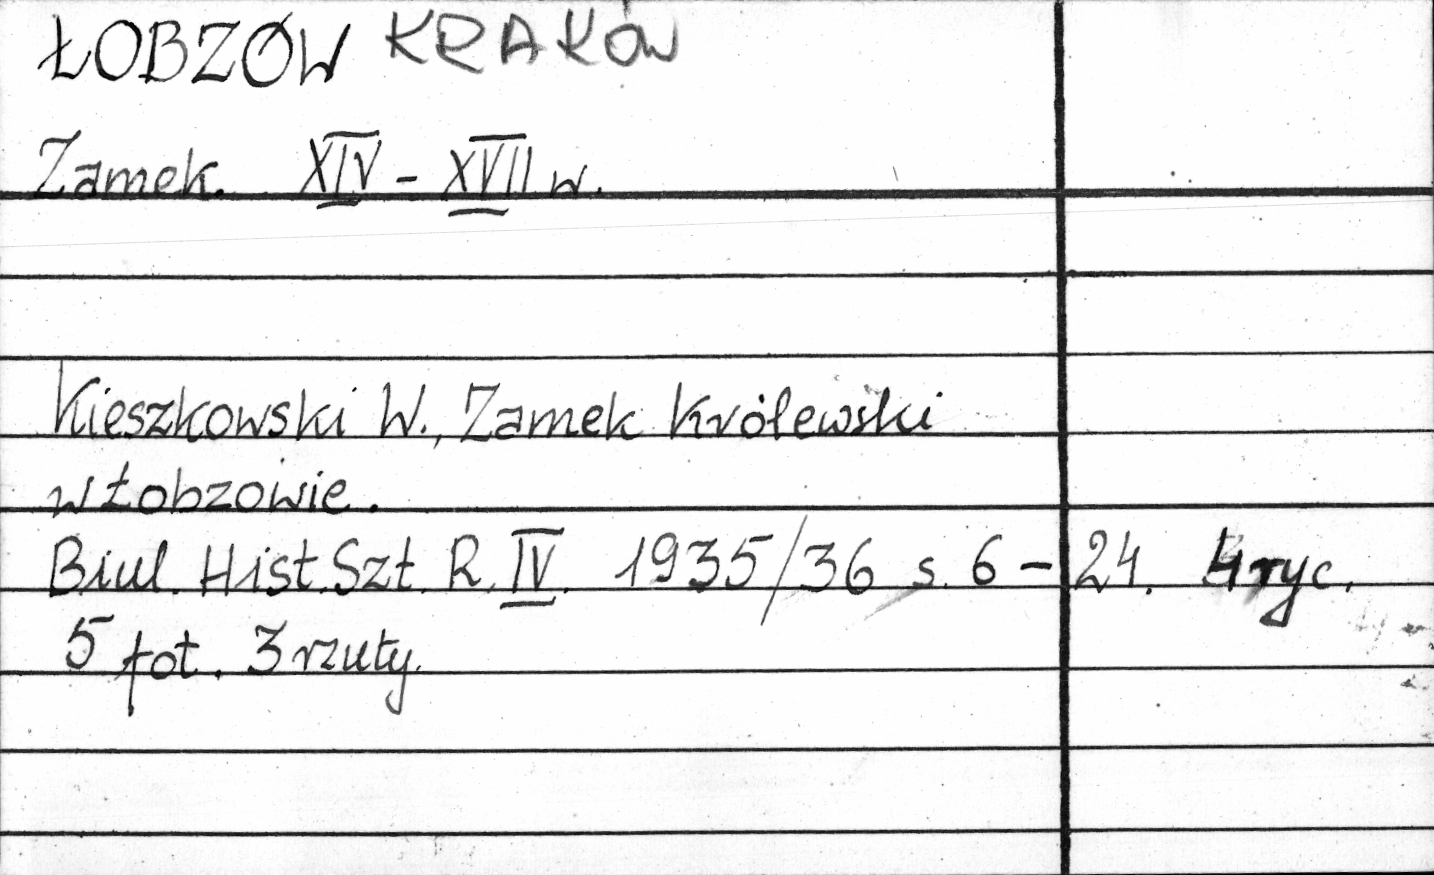 ŁOBZÓW KRAKÓW
Zamek. XIV - XVII w.
Kieszkowski W., Zamek Królewski
w Łobzowie.
Biul. Hist. Szt. R. IV. 1935/36 s. 6 - 24. 4 ryc.
5 fot. 3 rzuty.